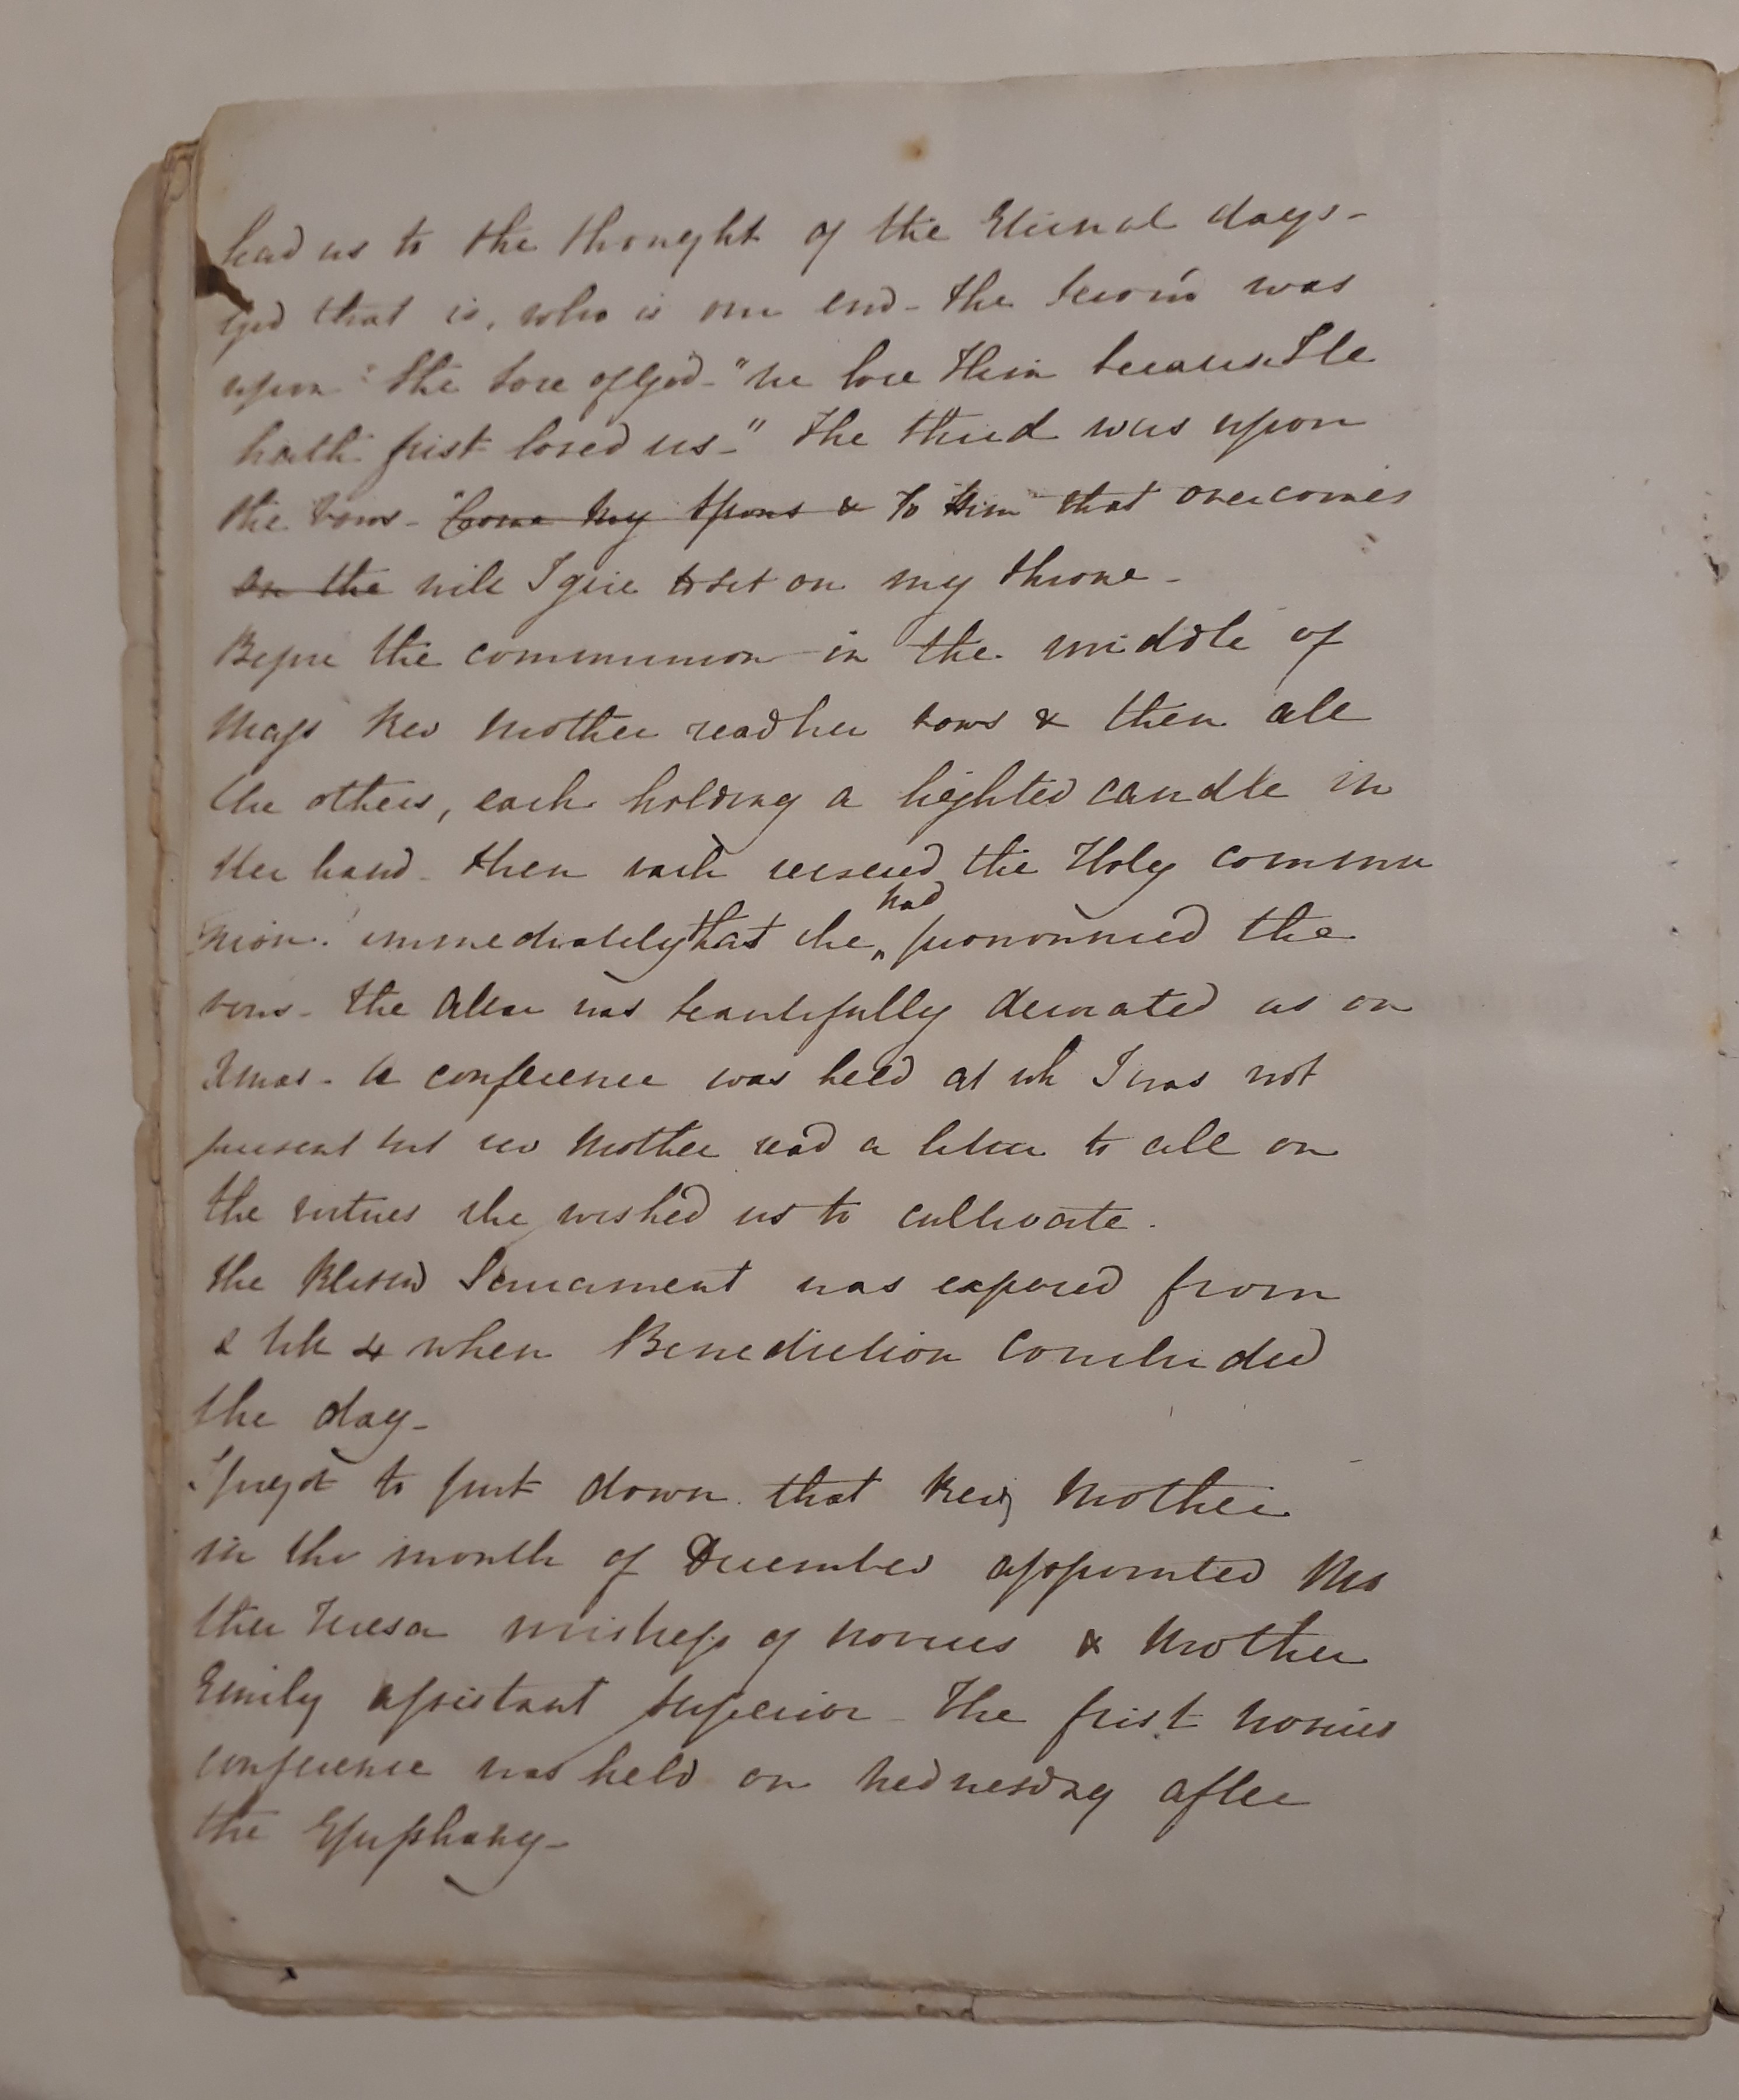 lead us to the thought of the Eternal days -
God that is, who is our end - the second was
upon "the love of God - "we love Him because He
hath first loved us -" The third was upon
the vows - "Come my Spous & To Him that overcomes
on the will I give to sit on my throne -
Before the communion in the middle of
Mass Rev Mother read her vows & then all
the others, each holding a lighted candle in
her hand - then each received the Holy commu
nion. immediately that she had pronounced the
vows - the Altar was beautifully decorated as on
Xmas - A conference was held at wh I was not
present but rev Mother read a letter to all on
the virtues she wished us to cultivate.
the Blessed Sacrament was exposed from
till 4 when Benediction concluded
the day -
I forgot to put down that Rev Mother
in the month of December appointed Mo
ther Teresa mistress of novices & Mother
Emily assistant Superior - The first novices
conference was held on Wednesday after
the Epiphany -